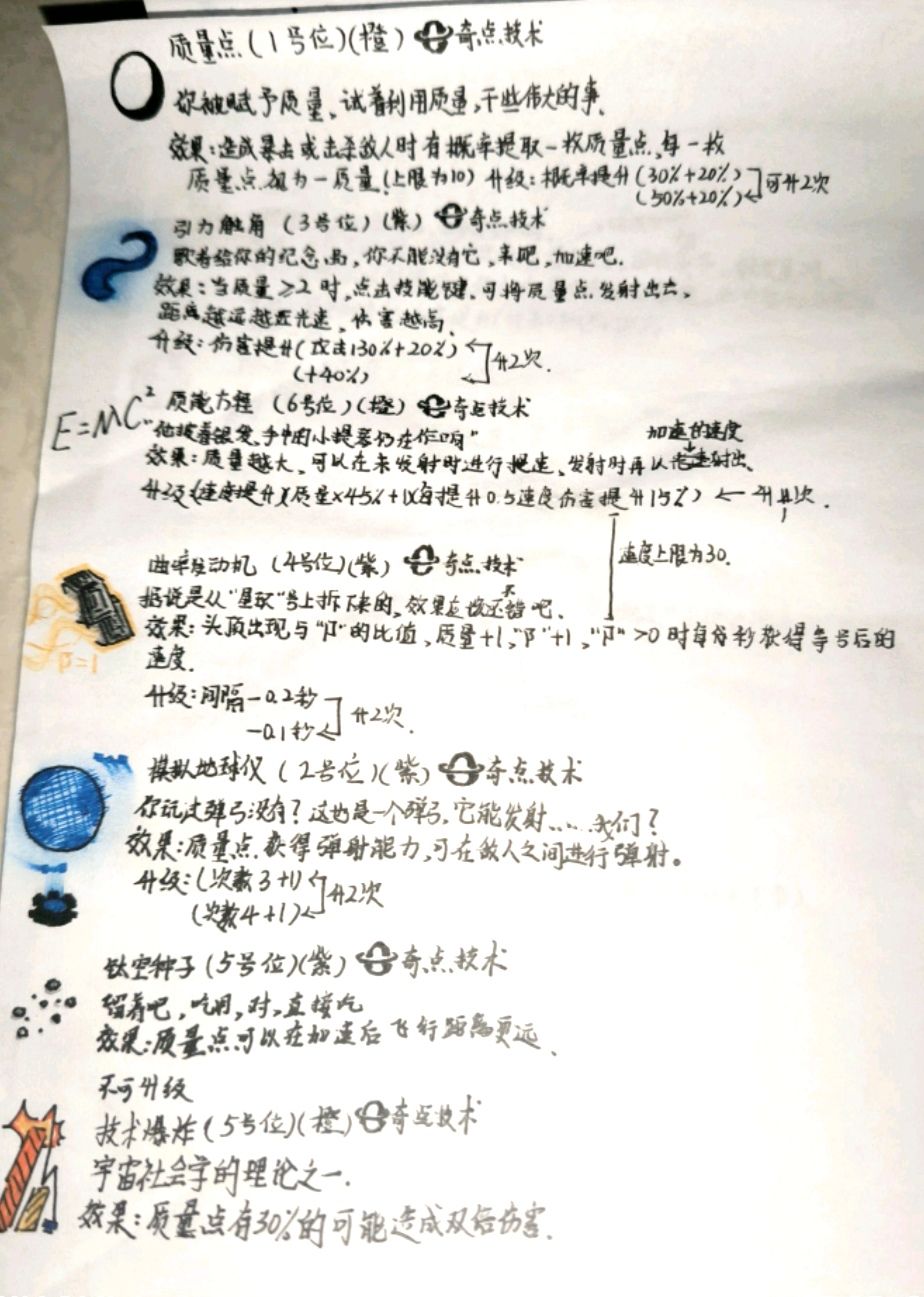 质量点(1号位)(橙) 奇点技术
你被赋予质量,试着利用质量,干些伟大的事.
效果:造成暴击或击杀敌人时有概率提取一枚质量点,每一枚
质量点视为一质量(上限为10) 升级:概率提升(30%+20%) 可升2次
(50%+20%)
引力触角(3号位)(紫) 奇点技术
歌者给你的纪念品,你不能没有它,来吧,加速吧.
效果:当质量≥2时,点击技能键,可将质量点发射出去,
距离越远越近光速,伤害越高,
升级:伤害提升(攻击130%+20%) 升2次.
(+40%)
E=MC²
质能方程(6号位)(橙) 奇点技术
"他披着银发,手中的小提琴仍在作响"
加速的速度
效果:质量越大,可以在未发射时进行提速,发射时再以射出.
升级(速度提升)(质量×45%+1)(每提升0.5速度伤害提升15%) ← 升1次.
速度上限为30.
曲率发动机(4号位)(紫) 奇点技术
据说是从"星环"号上拆下来的,效果应该还不错吧.
效果:头顶出现与"β"的比值,质量+1,"β"+1,"β">0时每秒获得等号后的
速度.
β=1
升级:间隔-0.2秒 升2次.
-0.1秒
模拟地球仪(2号位)(紫) 奇点技术
你玩过弹弓没有?这也是一个弹弓,它能发射......我们?
效果:质量点获得弹射能力,可在敌人之间进行弹射。
升级:(次数3+1) 升2次
(次数4+1)
太空种子(5号位)(紫) 奇点技术
留着吧,吃用,对,直接吃
效果:质量点可以在加速后飞行距离更远.
不可升级
技术爆炸(5号位)(橙) 奇点技术
宇宙社会学的理论之一.
效果:质量点有30%的可能造成双倍伤害.